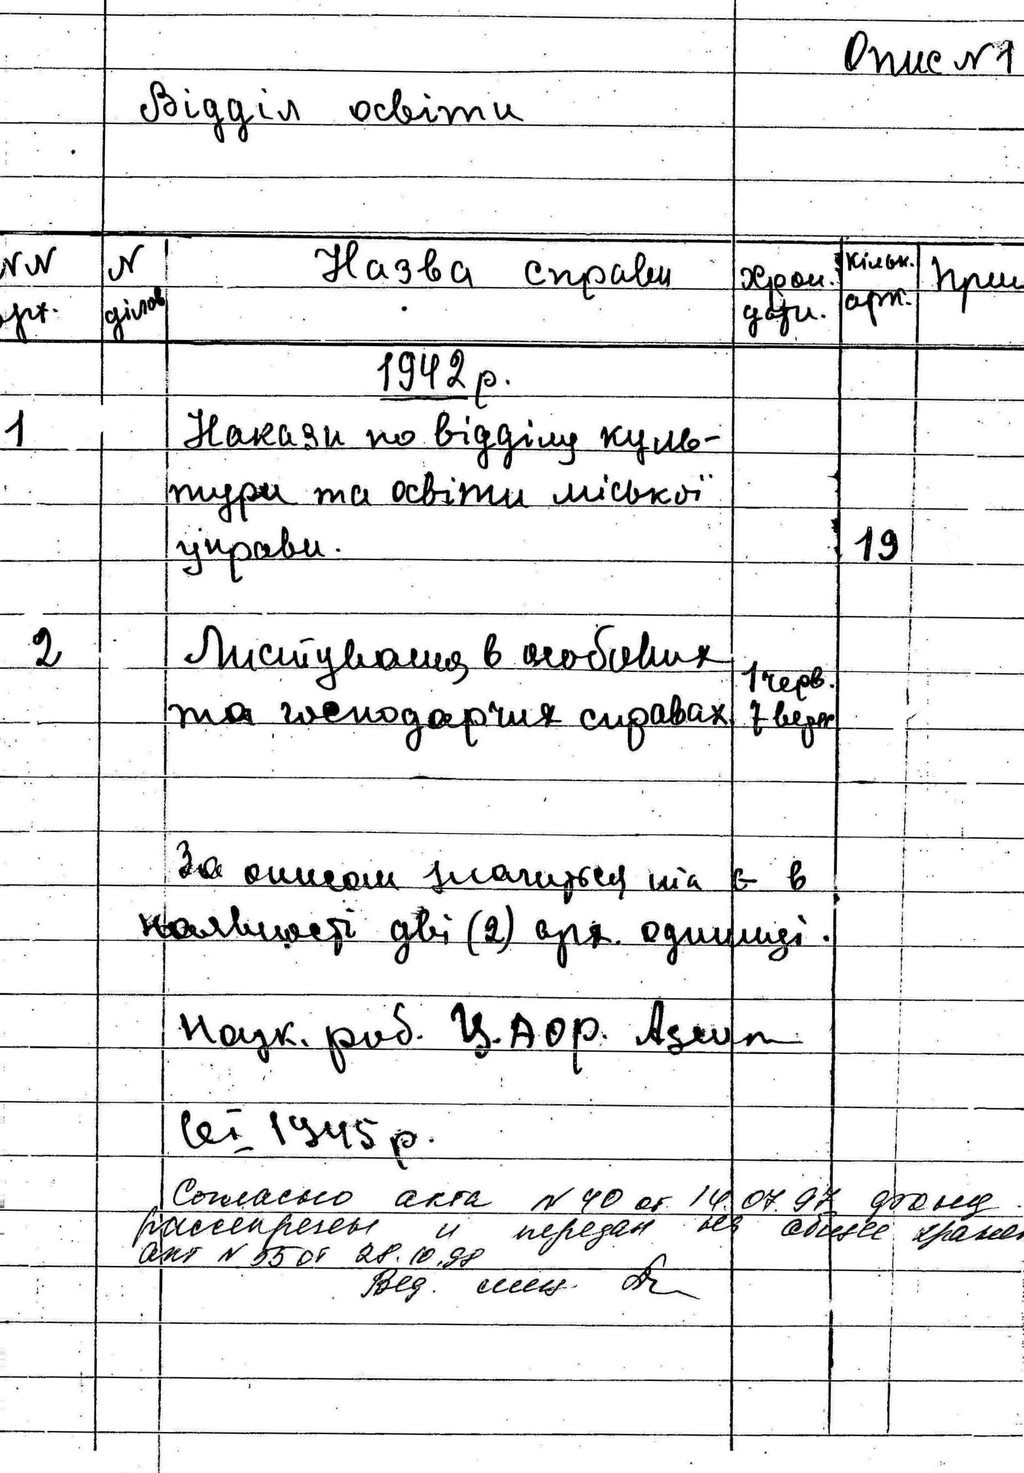 Опис N 1
Відділ освіти
NN арх.
N ділов
Назва справи
Хрон. дати.
Кільк. арк.
Прим
1942 р.
1
Накази по відділу куль-
тури та освіти міської
управи.
19
2
Листування в особових
та господарчих справах
1 черв.
7 верес
За описом значиться та є в
наявності дві (2) арх. одиниці.
Наук. роб. Ц.АОР.
1945 р.
Согласно акта N 40 от 14.07.97 фонд
рассекречен и передан на общее хранен
акт N 55 от 28.10.98
Вед. спец.